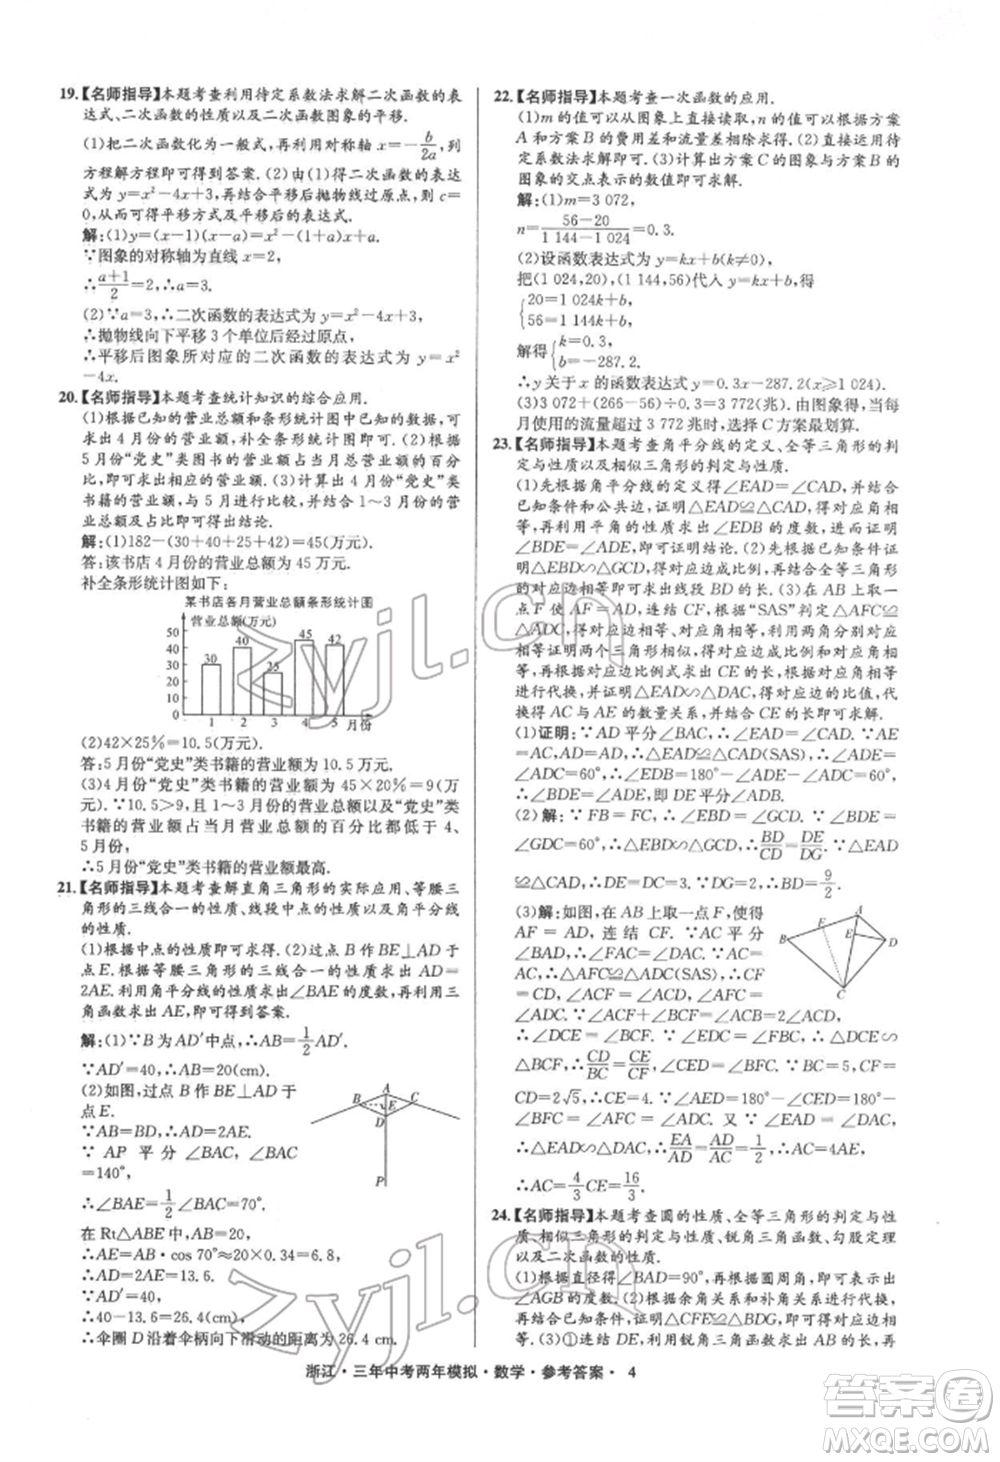 19.【名师指导】本题考查利用待定系数法求解二次函数的表
达式、二次函数的性质以及二次函数图象的平移.
(1)把二次函数化为一般式,再利用对称轴 x=-b/2a,列
方程解方程即可得到答案.(2)由(1)得到二次函数的表
达式为 y=x²-4x+3,再结合平移后抛物线过原点,则c=
0,从而可得平移方式及平移后的表达式.
解:(1)y=(x-1)(x-a)=x²-(a+1)x+a.
∵图象的对称轴为直线 x=2,
∴(a+1)/2=2,∴a=3.
(2)∵a=3,∴二次函数的表达式为 y=x²-4x+3,
∴抛物线向下平移 3 个单位后经过原点,
∴平移后图象所对应的二次函数的表达式为 y=x²
-4x.
20.【名师指导】本题考查统计知识的综合应用.
(1)根据已知的营业总额和条形统计图中已知的数据,可
求出 4 月份的营业总额,补全条形统计图即可.(2)根据
5月份“党史”类图书的营业额占当月营业总额的百分
比,即可求出相应的营业额.(3)计算出 4 月份“党史”类
书籍的营业额与5月份进行比较,并结合 1～3 月份的营
业额及占比即可得出结论.
解:(1)182-(30+40+25+42)=45(万元).
答:该书店 4 月份的营业总额为 45 万元.
补全条形统计图如下:
某书店各月营业总额条形统计图
营业总额(万元)
50
40
30
20
10
0
30
40
25
45
42
1 2 3 4 5 月份
(2)42×25%=10.5(万元).
答:5 月份“党史”类书籍的营业额为 10.5 万元.
(3)4 月份“党史”类书籍的营业额为 45×20%=9(万
元).∵10.5>9,且 1～3 月份的营业总额以及“党史”
类书籍的营业额占当月营业总额的百分比都低于 4、
5月份,
∴5 月份“党史”类书籍的营业额最高.
21.【名师指导】本题考查解直角三角形的实际应用、等腰三
角形的三线合一的性质、线段中点的性质和角平分线的
性质.
(1)根据中点的性质即可求得.(2)过点 B 作 BE⊥AD 于
点E.根据等腰三角形的三线合一的性质求出 AD=
2AE.利用角平分线的性质求出∠BAE 的度数,再利用三角
函数求出 AE,即可得到答案.
解:(1)∵B 为 AD′中点,∴AB=1/2 AD′.
∵AD′=40,∴AB=20(cm).
(2)如图,过点 B 作 BE⊥AD 于
点 E.
∵AB=BD,∴AD=2AE.
∵ AP 平分 ∠BAC, ∠BAC
=140°,
∴∠BAE=1/2∠BAC=70°.
A
B
C
E
D
P
在 Rt△ABE 中,AB=20,
∴AE=AB·cos 70°≈20×0.34=6.8,
∴AD=2AE=13.6.
∵AD′=40,
∴40-13.6=26.4(cm).
∴伞圈 D 沿着伞柄向下滑动的距离为 26.4 cm.
22.【名师指导】本题考查一次函数的应用.
(1)m 的值可以从图象上直接读取,n 的值可以根据方案
A 和方案 B 的费用差和流量差相除求得.(2)直接运用待
定系数法求解即可.(3)计算出方案 C 的图象与方案 B 的
图象的交点表示的数值即可求解.
解:(1)m=3 072,
n=(56-20)/(1 144-1 024)=0.3.
(2)设函数表达式为 y=kx+b(k≠0),
把(1 024,20),(1 144,56)代入 y=kx+b,得
{20=1 024k+b,
56=1 144k+b,
解得{k=0.3,
b=-287.2.
∴y 关于 x 的函数表达式为 y=0.3x-287.2(x≥1 024).
(3)3 072+(266-56)÷0.3=3 772(兆).由图象得,当每
月使用的流量超过 3 772 兆时,选择 C 方案最划算.
23.【名师指导】本题考查角平分线的定义、全等三角形的判
定与性质以及相似三角形的判定与性质.
(1)先根据角平分线的定义得出∠EAD=∠CAD,结合
已知条件和公共边,证明△EAD≌△CAD,得对应角相等,
再利用平角的性质求出∠EDB 的度数,进而证得
∠BDE=∠ADE,即可证明结论.(2)先根据已知条件证
明△EBD∽△GCD,得对应边成比例,再结合(1)中求得
的对应边相等代换即可求出线段 BD 的长.(3)在 AB 上取一
点 F 使 AF=AD,连结 CF.根据“SAS”判定△AFC≌
△ADC,得对应边相等、对应角相等,利用两角分别对应相等
证明两个三角形相似,再根据对应边成比例求出 CE 的长,最
后根据对应边成比例和已知的对应边相等
进行代换,证明△EAD∽△DAC,得出对应边的比值,代
换得 AC 与 AE 的数量关系,并结合 CE 的长求解.
(1)证明:∵ AD 平分∠BAC,∴∠EAD=∠CAD.∵AE
=AC,AD=AD,∴△EAD≌△CAD(SAS),∴∠ADE=
∠ADC=60°,∴∠EDB=180°-∠ADE-∠ADC=60°,
∴∠BDE=∠ADE,即 DE 平分∠ADB.
(2) 解:∵ FB = FC,∴∠EBD = ∠GCD.∵∠BDE =
∠GDC=60°,∴△EBD∽△GCD,∴BD/CD=DE/DG.∵△EAD
≌△CAD,∴DE=CD=3.∵DG=2,∴BD=9/2.
(3)解:如图,在 AB 上取一点 F,使
AF=AD, 连结 CF. ∵AC 平分
∠BAD,∴∠FAC=∠DAC.∵AC=
AC,∴△AFC≌△ADC(SAS),∴CF
=CD,∠ACF=∠ACD,∠AFC=
A
B
F
E
D
C
∠ADC.∵∠ACF+∠BCF=∠ACB=2∠ACD,
∴∠DCE=∠BCF.∵∠EDC=∠FBC,∴△DCE∽
△BCF,∴CD/BC=CE/CF,∠CED=∠BFC.∵BC=5,CF=
CD=2√5,∴CE=4.∵∠AED=180°-∠CED=180°-
∠BFC=∠AFC=∠ADC. 又 ∵∠EAD=∠DAC,
∴△EAD∽△DAC,∴EA/AD=AD/AC=1/2,∴AC=4AE,
∴AC=4/3 CE=16/3.
24.【名师指导】本题考查圆的性质、全等三角形的判定与性
质、相似三角形的判定与性质、锐角三角函数、勾股定理
以及二次函数的性质.
(1)根据直径得∠BAD=90°,再根据圆周角定理求解
∠AGB 的度数.(2)根据余角关系和补角关系,证明
△CFE≌△DBG 即可.(3)①连结 DE,利用锐角三角函数求解
浙江·三年中考两年模拟·数学·参考答案· 4
zyjl.cn
答案圈
MXQE.COM